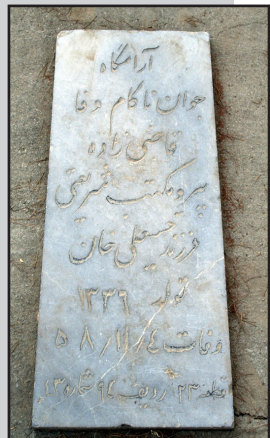 آرامگاه
جوان ناکام وفا
قاضی زاده
پیرو مکتب شریعتی
فرزند حسینعلی خان
تولد ۱۳۳۶
وفات ۵۸/۱۱/۴
قطعه ۲۳ ردیف ۹۴ شماره ۱۳